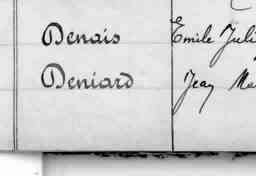 Denais Emile Juli
Deniard Jean Ma